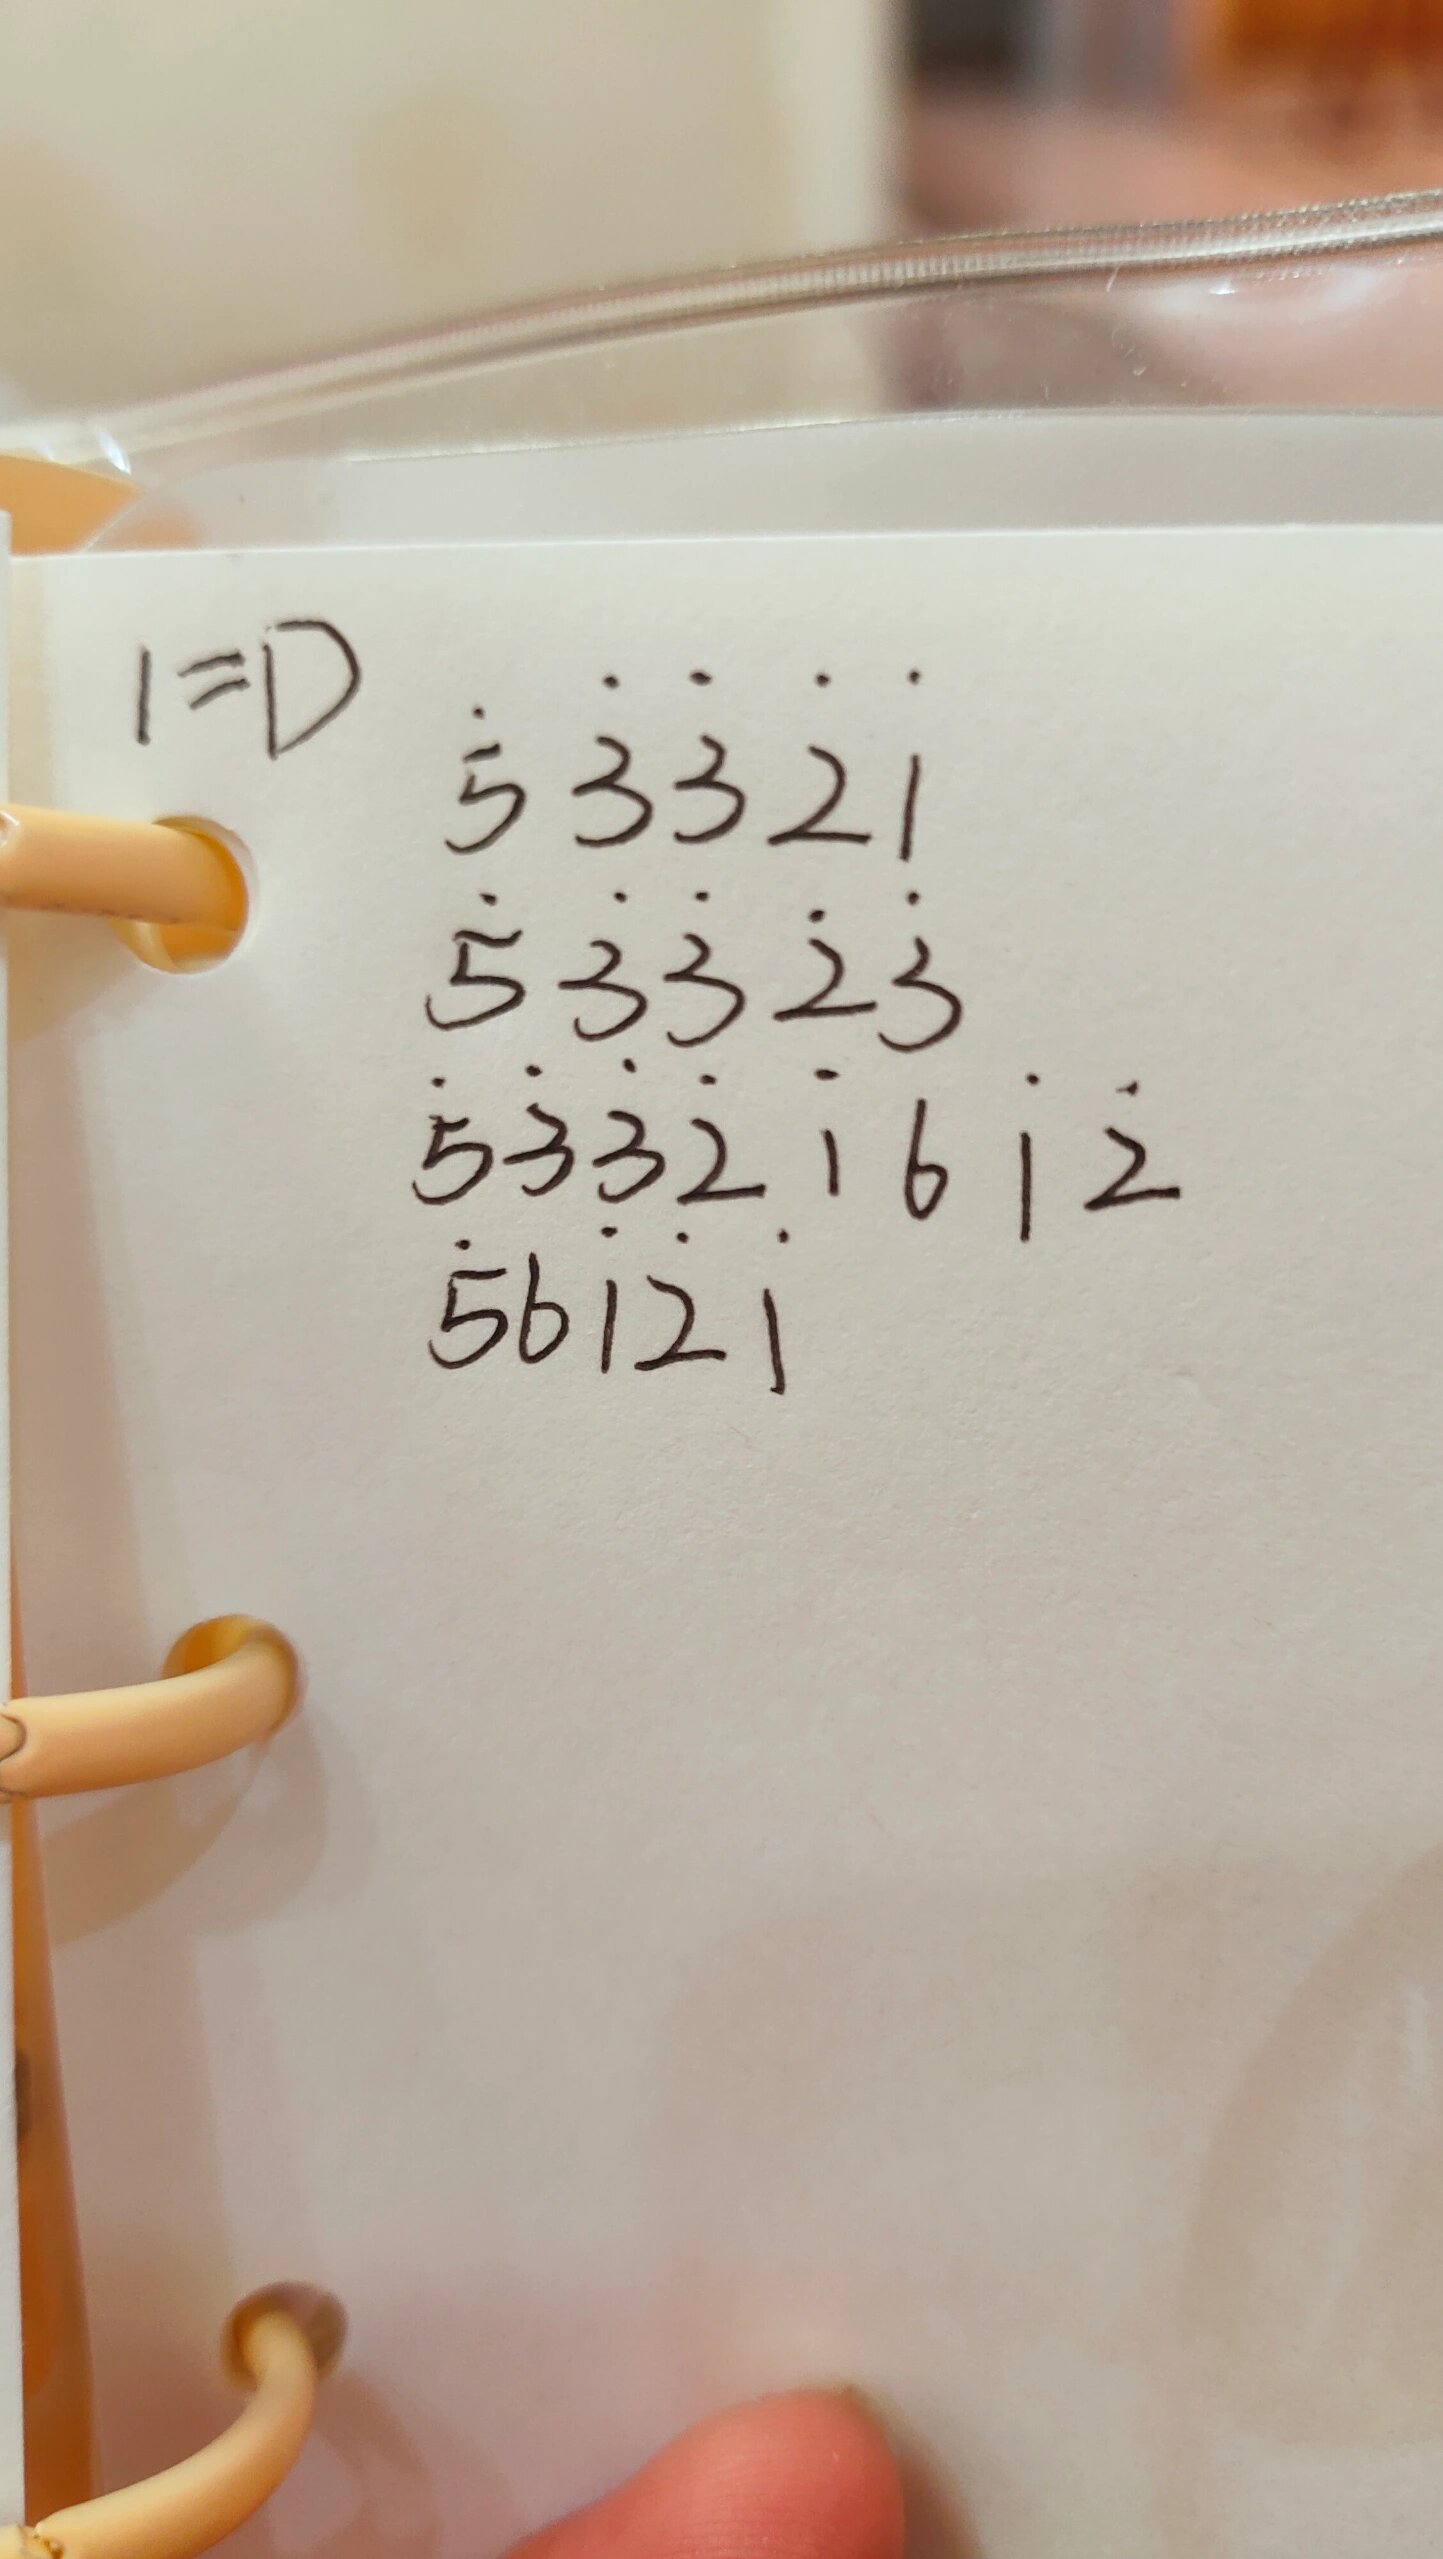 1=D
5̇ 3̇ 3̇ 2̇ 1̇
5̇ 3̇ 3̇ 2̇ 3̇
5̇ 3̇ 3̇ 2̇ 1̇ 6 1̇ 2̇
5̇ 6 1̇ 2̇ 1̇